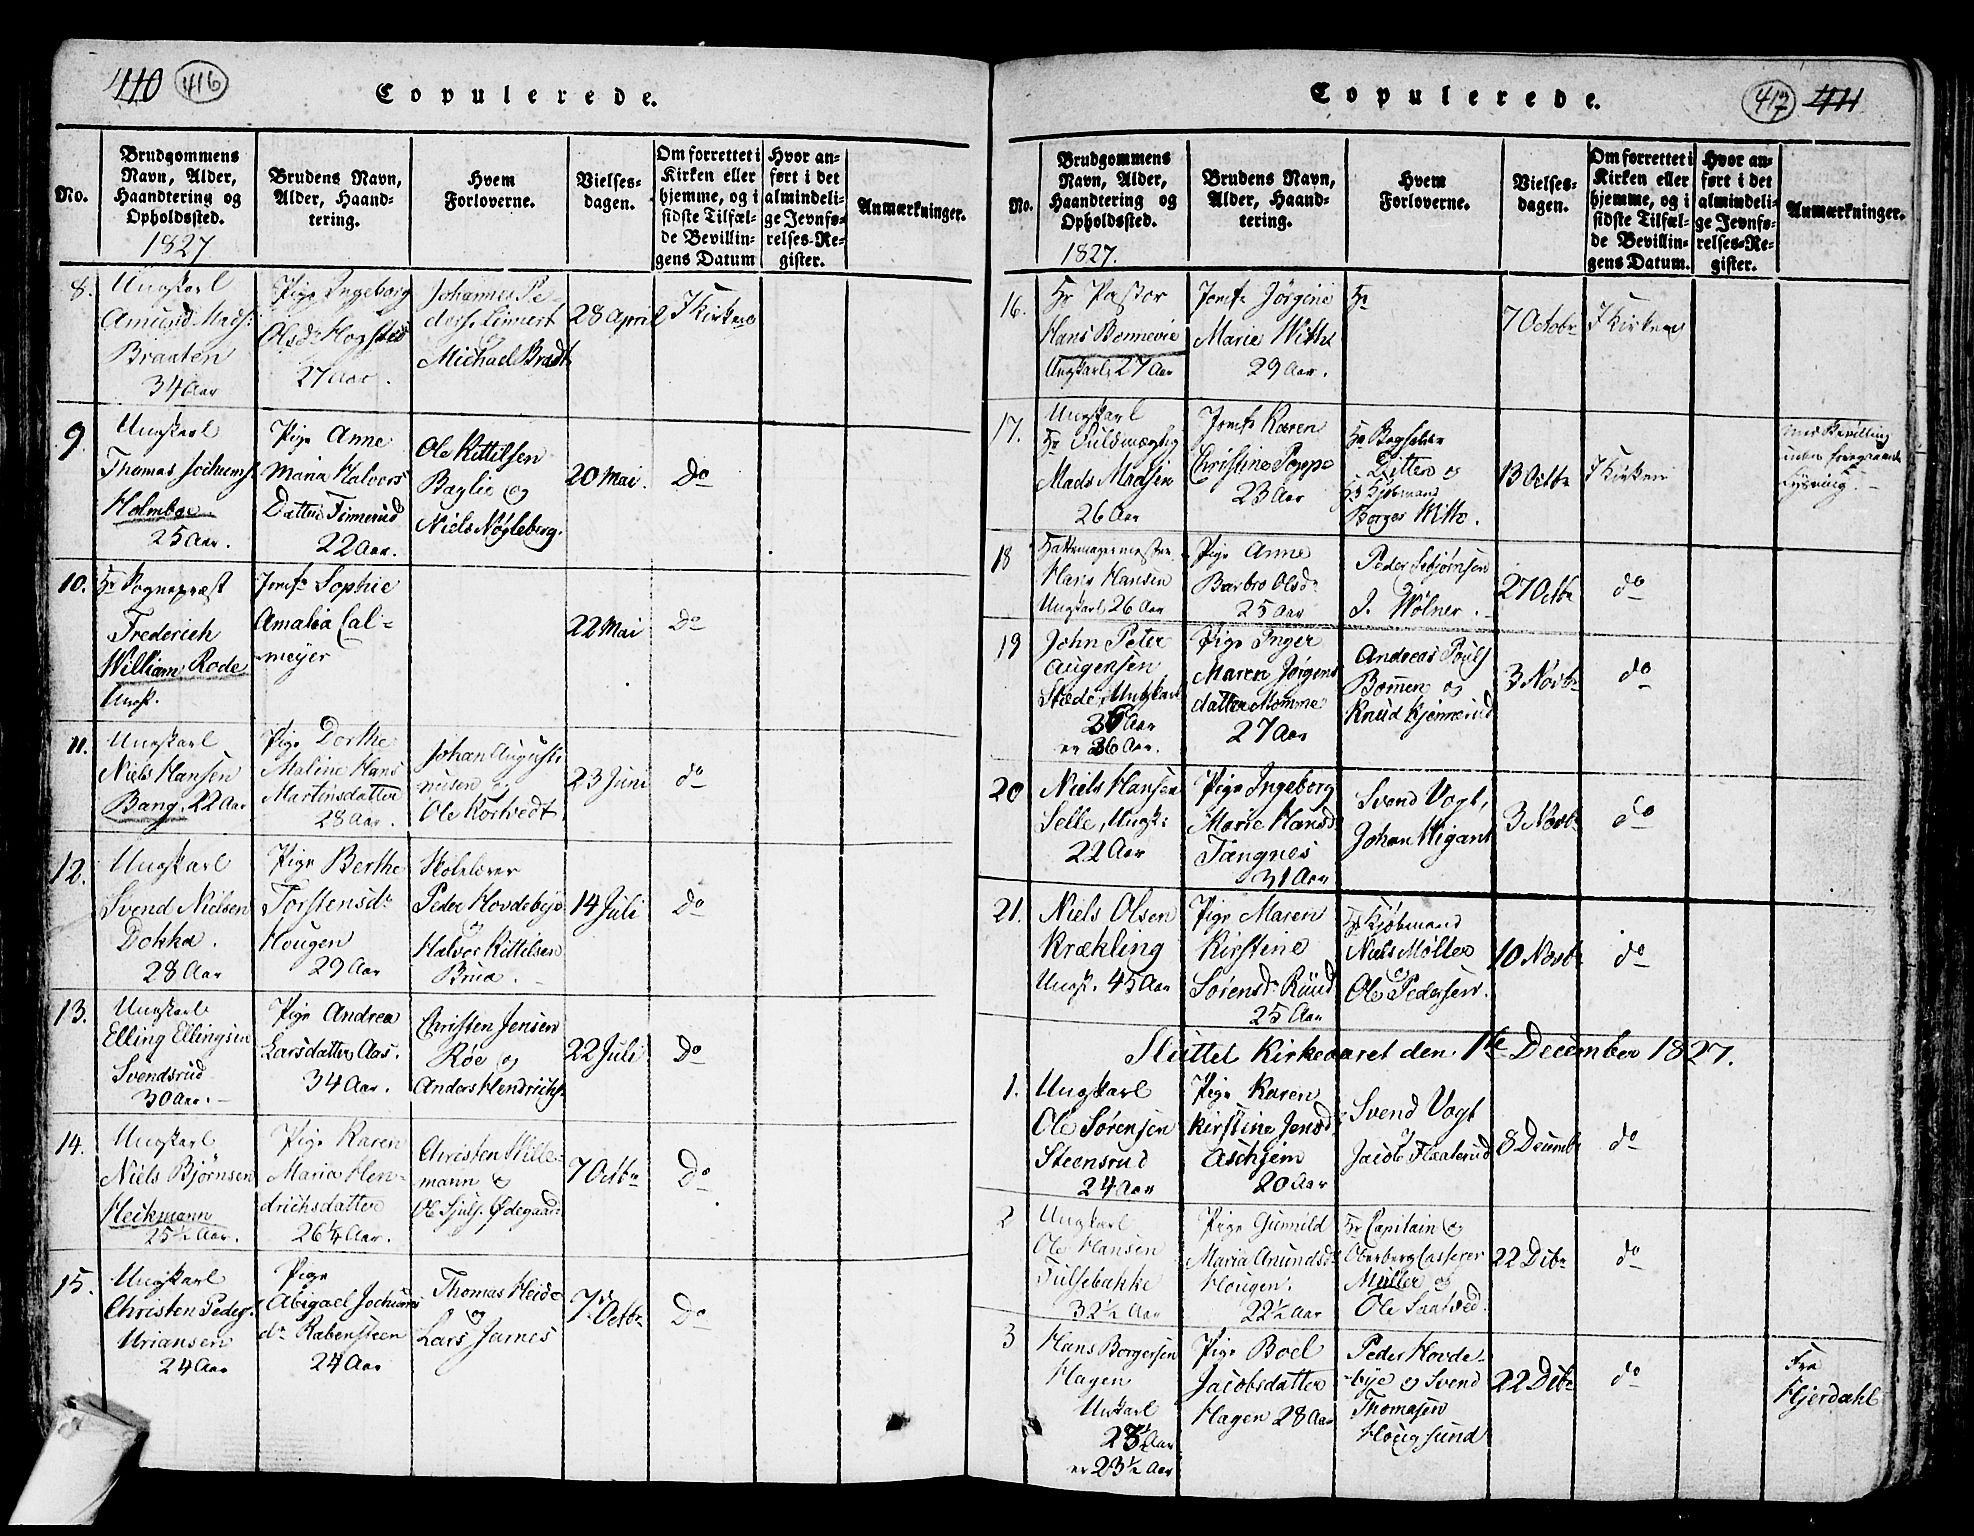 410 416
Copulerede.
No.
Brudgommens
Navn, Alder,
Haandtering og
Opholdssted.
1827
Brudens Navn,
Alder, Haand-
tering.
Hvem
Forloverne.
Vielses-
dagen.
Om forrettet i
Kirken eller
hjemme, og i
sidste Tilfæl-
de Bevillin-
gens Datum
Hvor an-
ført i det
almindeli-
ge Jevnfø-
relses-Re-
gister.
Anmærkninger.
8.
Ungkarl
Amund Mads:
Braaten
34 Aar
Pige Ingeborg
Olsdr Hogstad
27 Aar.
Johannes Pe-
ders. Linnert
Michael Bradt
28 April
I Kirken
9
Ungkarl
Thomas Jochums
Holmboe.
25 Aar.
Pige Anne
Maria Halvors
Datter Finnerud
22 Aar.
Ole Kittilsen
Baglie og
Niels Nøgleberg.
20 Mai.
Do
10.
Hr Sognepræst
Frederich
William Rode
Ungk.
Jomfr Sophie
Amalia Cal-
meyer
22 Mai
Do
11.
Ungkarl
Niels Hansen
Bang. 22 Aar
Pige Dorthe
Maline Hans
Martinsdatter
28 Aar.
Johan Augusti
nusen og
Ole Kortvedt.
23 Juni
do
12.
Ungkarl
Svend Nielsen
Dokka.
28 Aar
Pige Berthe
Torstensdr
Hougen
29 Aar
Skolelærer
Peder Hovdebye
og
Halvor Kittilsen
Brua.
14 Juli
Do
13.
Ungkarl
Elling Ellingsen
Svendsrud
30 Aar.
Pige Andrea
Larsdatter Aas.
34 Aar.
Christen Jensen
Røe og
Anders Hendrichs.
22 Juli
Do
14.
Ungkarl
Niels Bjørnsen
Heckmann
25½ Aar.
Pige Karen
Maria Hen-
drichsdatter
26¼ Aar.
Christen Wille-
mann og
Ole Sjuls. Ødegaard
7 Octbr
Do
15.
Ungkarl
Christen Peders.
Uriansen
24 Aar
Pige
Abigael Jochums
dr Rabensteen
24 Aar
Thomas Heide
og
Lars James
7 Octbr
Do
Copulerede.
417 411
No.
Brudgommens
Navn, Alder,
Haandtering og
Opholdssted.
1827.
Brudens Navn,
Alder, Haand-
tering.
Hvem
Forloverne.
Vielses-
dagen.
Om forrettet i
Kirken eller
hjemme, og i
sidste Tilfæl-
de Bevillin-
gens Datum.
Hvor an-
ført i det
almindeli-
ge Jevnfø-
relses-Re-
gister.
Anmærkninger.
16.
Hr Pastor
Hans Bonnevie
Ungkarl, 27 Aar
Jomfr Jørgine
Marie Witth
29 Aar.
Hr
7 Octobr
I Kirken
17.
Ungkarl
Hr Fuldmægtig
Mads Madsen
26 Aar
Jomfr Karen
Christine Poppe
23 Aar
Hr Bogholder
Ditten og
Hr Kjøbmand
Borger Witte.
13 Octbr
I Kirken
med Bevilling
uden foregaaende
Lysning.
18
Hattemagermester
Hans Hansen
Ungkarl, 26 Aar
Pige Anne
Barbro Olsdr
25 Aar
Peder Esbjørnsen
J. Wølner.
27 Octbr
do
19
John Peter
Augensen
Stæde, Ungkarl
Aar
er 26 Aar.
Pige Inger
Maren Jørgens
datter Momme
27 Aar
Andreas Pouls
Bomen og
Knud Kjennerud
3 Novbr
do
20
Niels Hansen
Selle, Ungk:
22 Aar
Pige Ingeborg
Marie Hansd
Tangnes
31 Aar
Svend Vogt,
Johan Wigant
3 Novbr
do
21.
Niels Olsen
Krækling
Ungk. 45 Aar
Pige Maren
Kirstine
Sørensdr Ruud
25 Aar
Hr Kjøbmand
Niels Møller
og
Ole Pedersen.
10 Novbr
do
Sluttet Kirkeaaret den 1te December 1827.
1.
Ungkarl
Ole Sørensen
Steensrud
24 Aar
Pige Karen
Kirstine Jensd
Aschjem
20 Aar
Svend Vogt
og
Jacob Flaaterud
8 Decembr
do
2
Ungkarl
Ole Hansen
Tulsebakke
32½ Aar
Pige Gunnild
Maria Amundsdr
Hougen.
22½ Aar
Hr Capitain og
Oberberg Casserer
Müller og
Ole Saatved.
22 Dcbr
do
3
Hans Borgersen
Hagen
Ungkarl
Aar
er 23½ Aar
Pige Boel
Jacobsdatter
Hagen 28 Aar
Peder Hovde-
bye og Svend
Thomasen
Hougsund
22 Dcbr
do
Fra
Hjerdahl